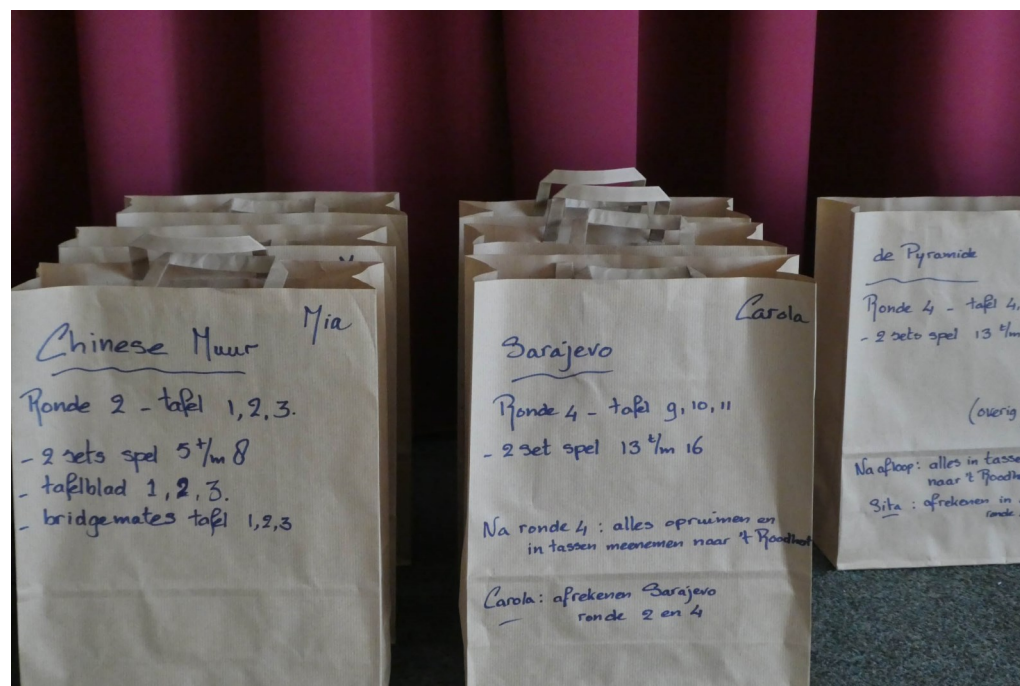 Mia
Chinese Muur
Ronde 2 - tafel 1, 2, 3.
- 2 sets spel 5 t/m 8
- tafelblad 1, 2, 3.
- bridgemates tafel 1, 2, 3
Carola
Sarajevo
Ronde 4 - tafel 9, 10, 11
- 2 set spel 13 t/m 16
Na ronde 4 : alles opruimen en
in tassen meenemen naar 't Roodhert
Carola : afrekenen Sarajevo
ronde 2 en 4
de Pyramide
Ronde 4 - tafel 4,
- 2 sets spel 13 t/m
(overig
Na afloop : alles in tasse
naar 't Roodh
Sita : afrekenen in
ronde